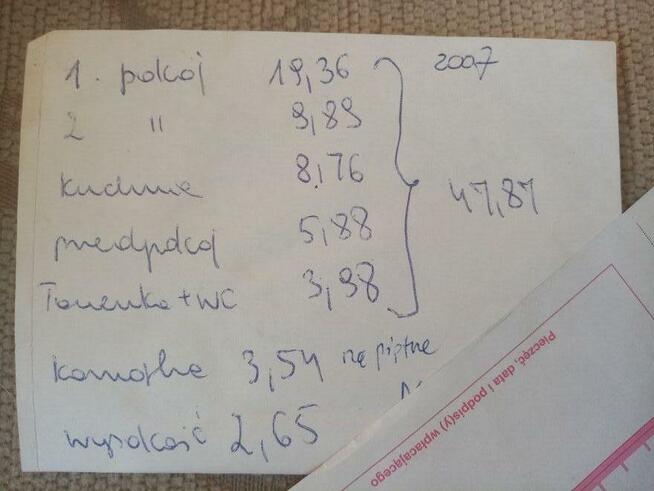 1. pokój 19,36 2007
2 " 9,89
kuchnia 8,76 47,87
przedpokój 5,88
Łazienka + WC 3,98
komórka 3,54 na piętrze
wysokość 2,65
Pieczęć, data i podpis(y) wpłacającego